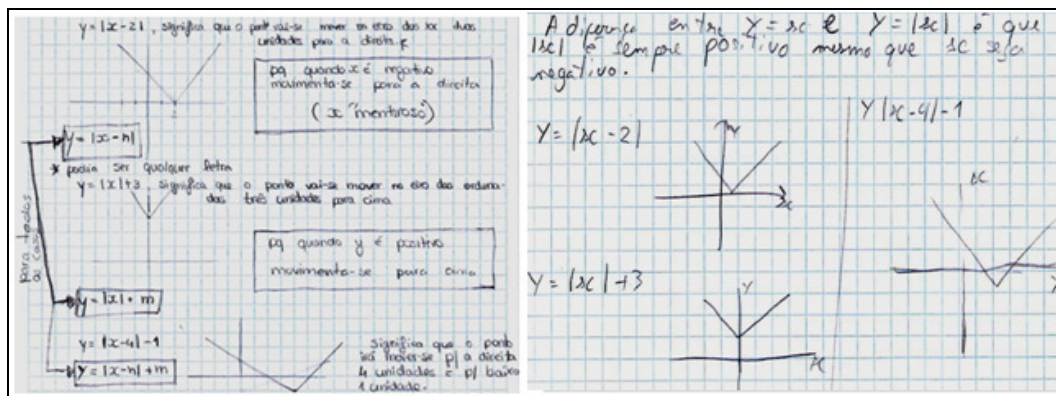 y = |x-2|, significa que o ponto vai-se mover no eixo dos xx duas
unidades para a direita
pq quando x é negativo
movimenta-se para a direita
(x "mentiroso")
y = |x-n|
* podia ser qualquer letra
y = |x|+3, significa que o ponto vai-se mover no eixo das ordena-
das três unidades para cima
pq quando y é positivo
movimenta-se para cima
para todos
os casos
y = |x| + m
y = |x-4| -1
y = |x-n|+m
Significa que o ponto
irá mover-se p/ a direita
4 unidades e p/ baixo
1 unidade.
A diferença entre Y = x e Y = |x| é que
|x| é sempre positivo mesmo que x seja
negativo.
Y = |x-2|
x
Y |x-4|-1
x
Y = |x|+3
Y
x